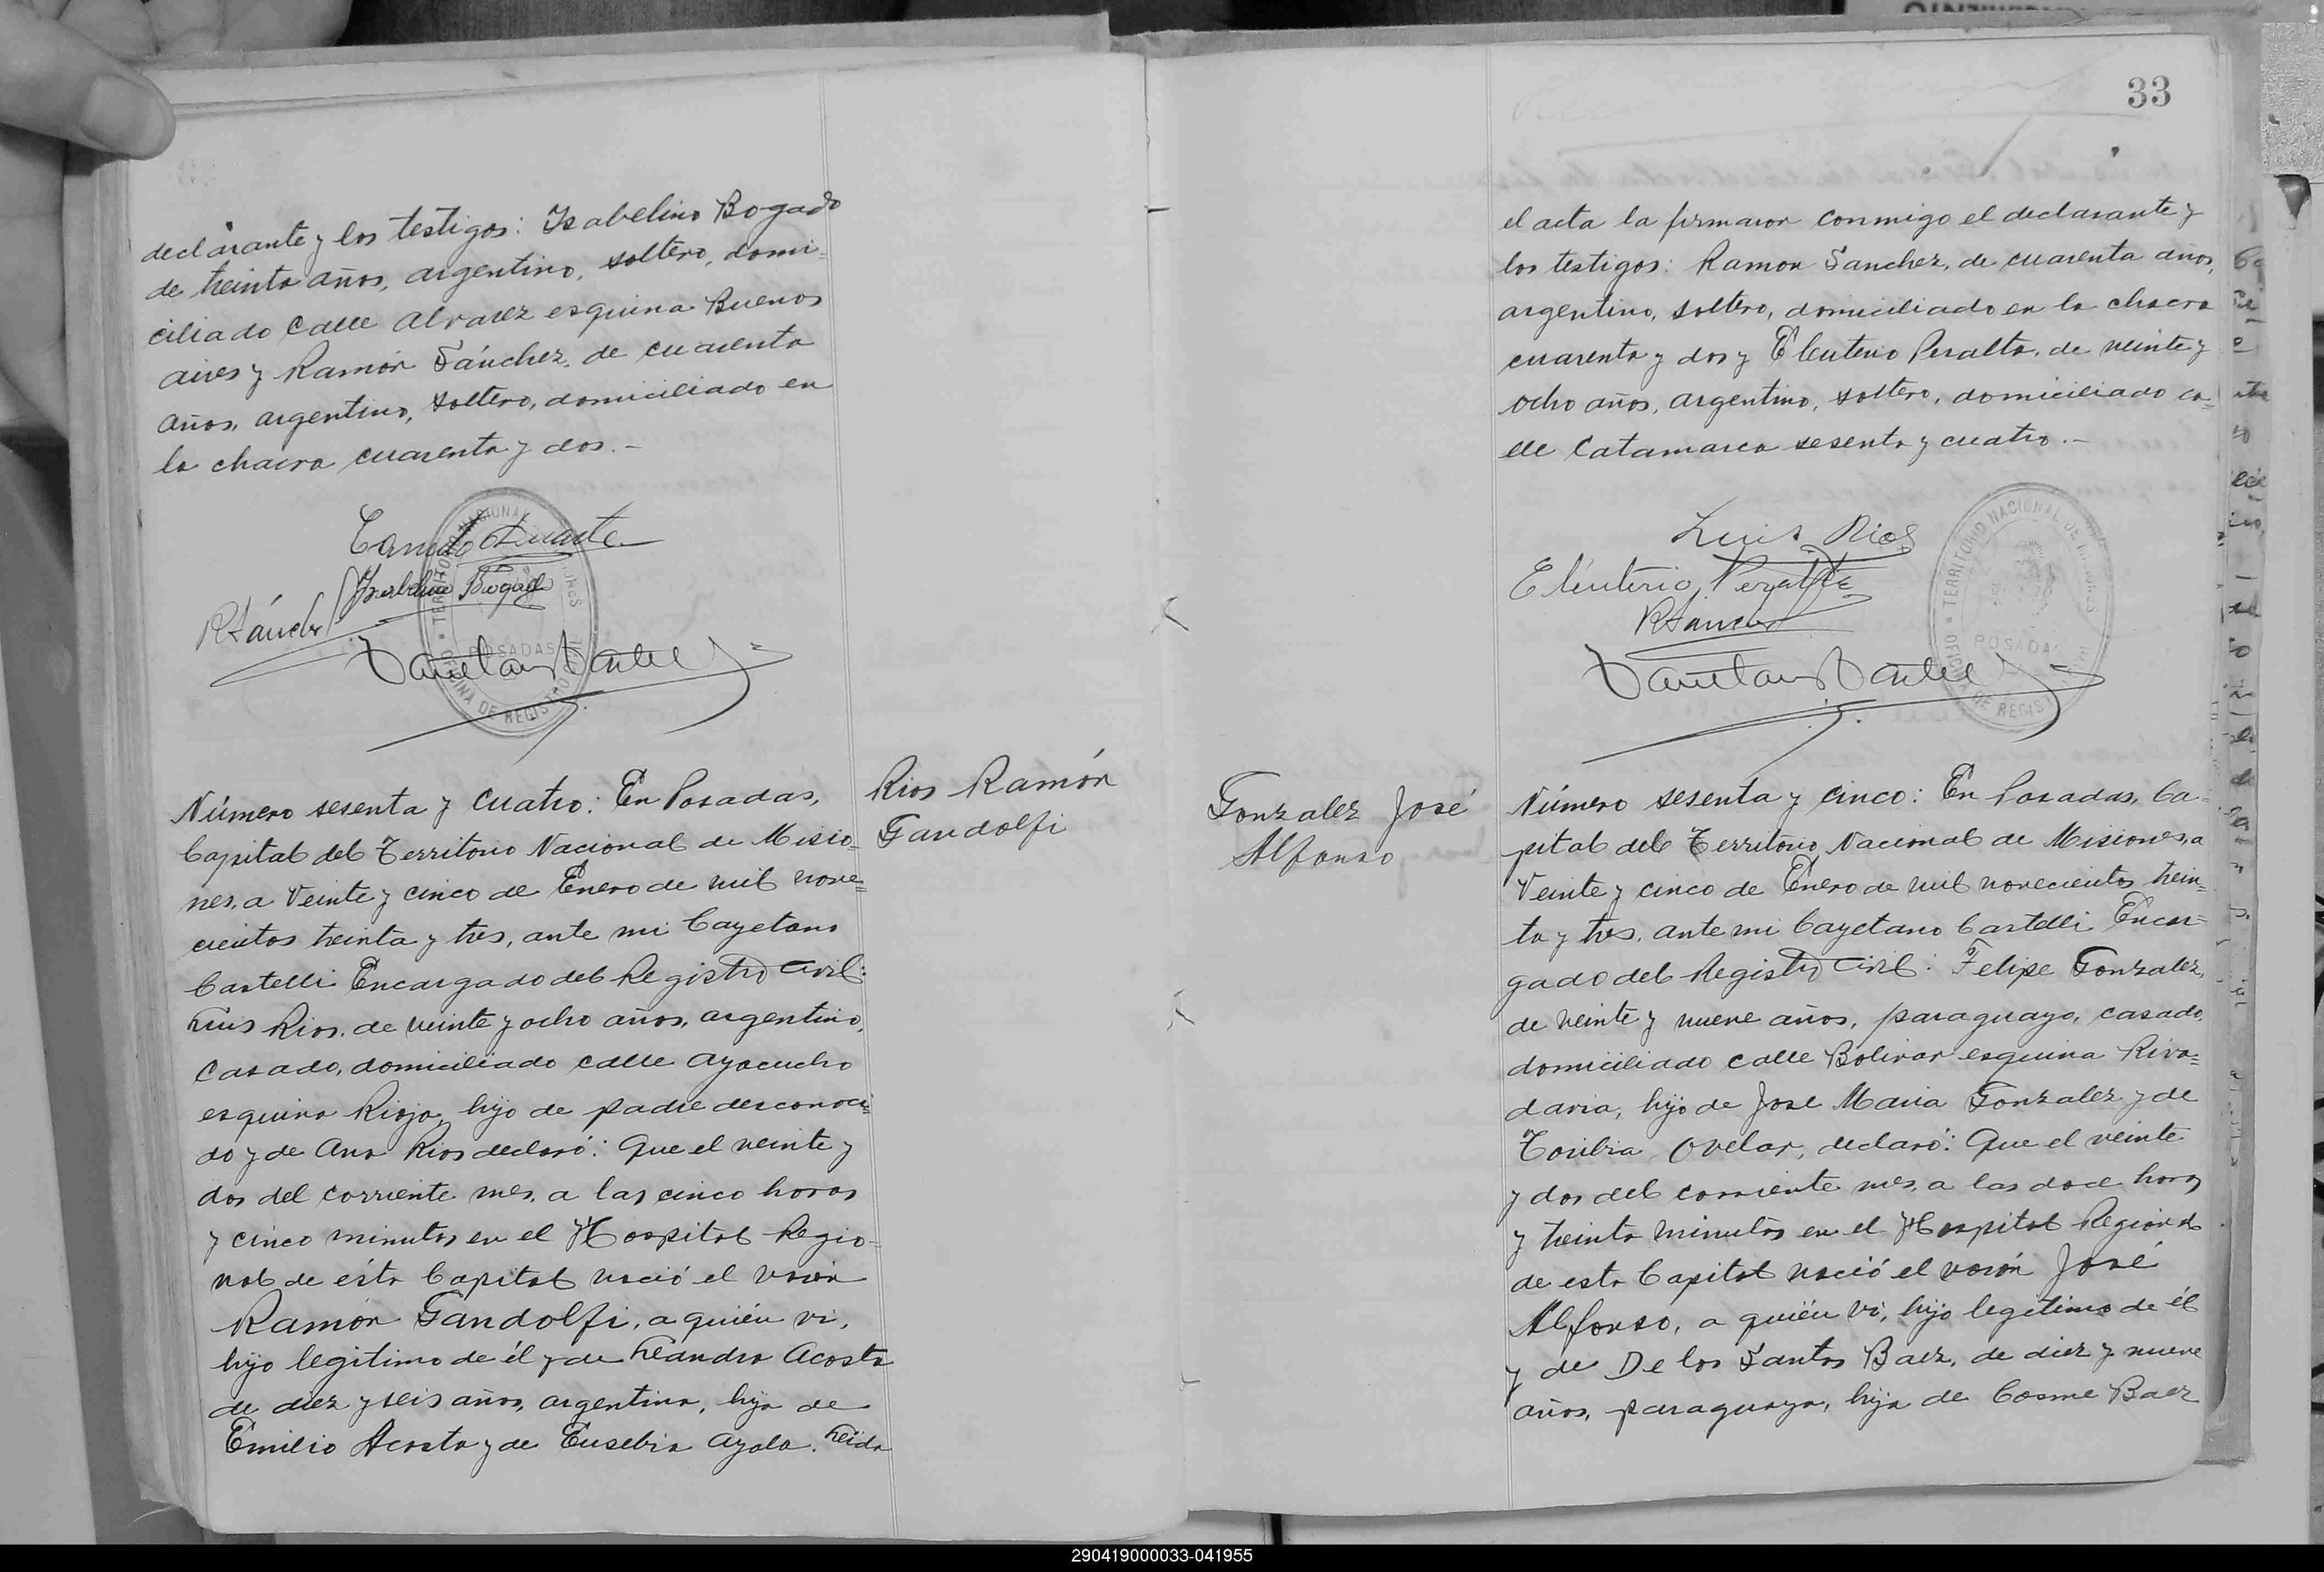 declarante y los testigos: Isabelino Bogado
de treinta años, argentino, soltero, domi-
ciliado Calle Alvarez esquina Buenos
aires y Ramón Sánchez, de cuarenta
años, argentino, soltero, domiciliado en
la chacra cuarenta y dos.-
Duarte
Isabelino Bogado
RSánchez
TERRITORIO NACIONAL DE MISIONES
POSADAS
OFICINA DE REGISTRO
Rios Ramón
Gandolfi
Número sesenta y cuatro: En Posadas,
Capital del Territorio Nacional de Misio-
nes, a Veinte y cinco de Enero de mil nove=
cientos treinta y tres, ante mi Cayetano
Castelli Encargado del Registro Civil:
Luis Rios, de veinte y ocho años, argentino,
Casado, domiciliado calle Ayacucho
esquina Rioja, hijo de padre desconoci=
do y de Ana Rios declaró: Que el veinte y
dos del corriente mes, a las cinco horas
y cinco minutos en el Hospital Regio-
nal de ésta Capital nació el varón
Ramón Gandolfi, a quién vi,
hijo legitimo de él y de Leandra Acosta
de diez y seis años, argentina, hija de
Emilio Acosta y de Eusebia Ayala. Leída
33
el acta la firmaron conmigo el declarante y
los testigos: Ramon Sanchez, de cuarenta años,
argentino, soltero, domiciliado en la chacra
cuarenta y dos y Eleuterio Peralta, de veinte y
ocho años, argentino, soltero, domiciliado ca=
lle Catamarca sesenta y cuatro.-
Luis Rios
Eleuterio Peralta
RSanchez
TERRITORIO NACIONAL DE MISIONES
POSADAS
OFICINA DE REGISTRO
Gonzalez José
Alfonso
Número sesenta y cinco: En Posadas, Ca-
pital del Territorio Nacional de Misiones, a
Veinte y cinco de Enero de mil novecientos trein=
ta y tres, ante mi Cayetano Castelli Encar=
gado del Registro Civil: Felipe Gonzalez,
de veinte y nueve años, paraguayo, casado,
domiciliado calle Bolivar esquina Riva=
davia, hijo de José Maria Gonzalez y de
Toribia Ovelar, declaró: Que el veinte
y dos del corriente mes, a las doce horas
y treinta minutos en el Hospital Regional
de esta Capital nació el varón José
Alfonso, a quién vi, hijo legítimo de él
y de De los Santos Baez, de diez y nueve
años, paraguaya, hija de Cosme Baez
290419000033-041955